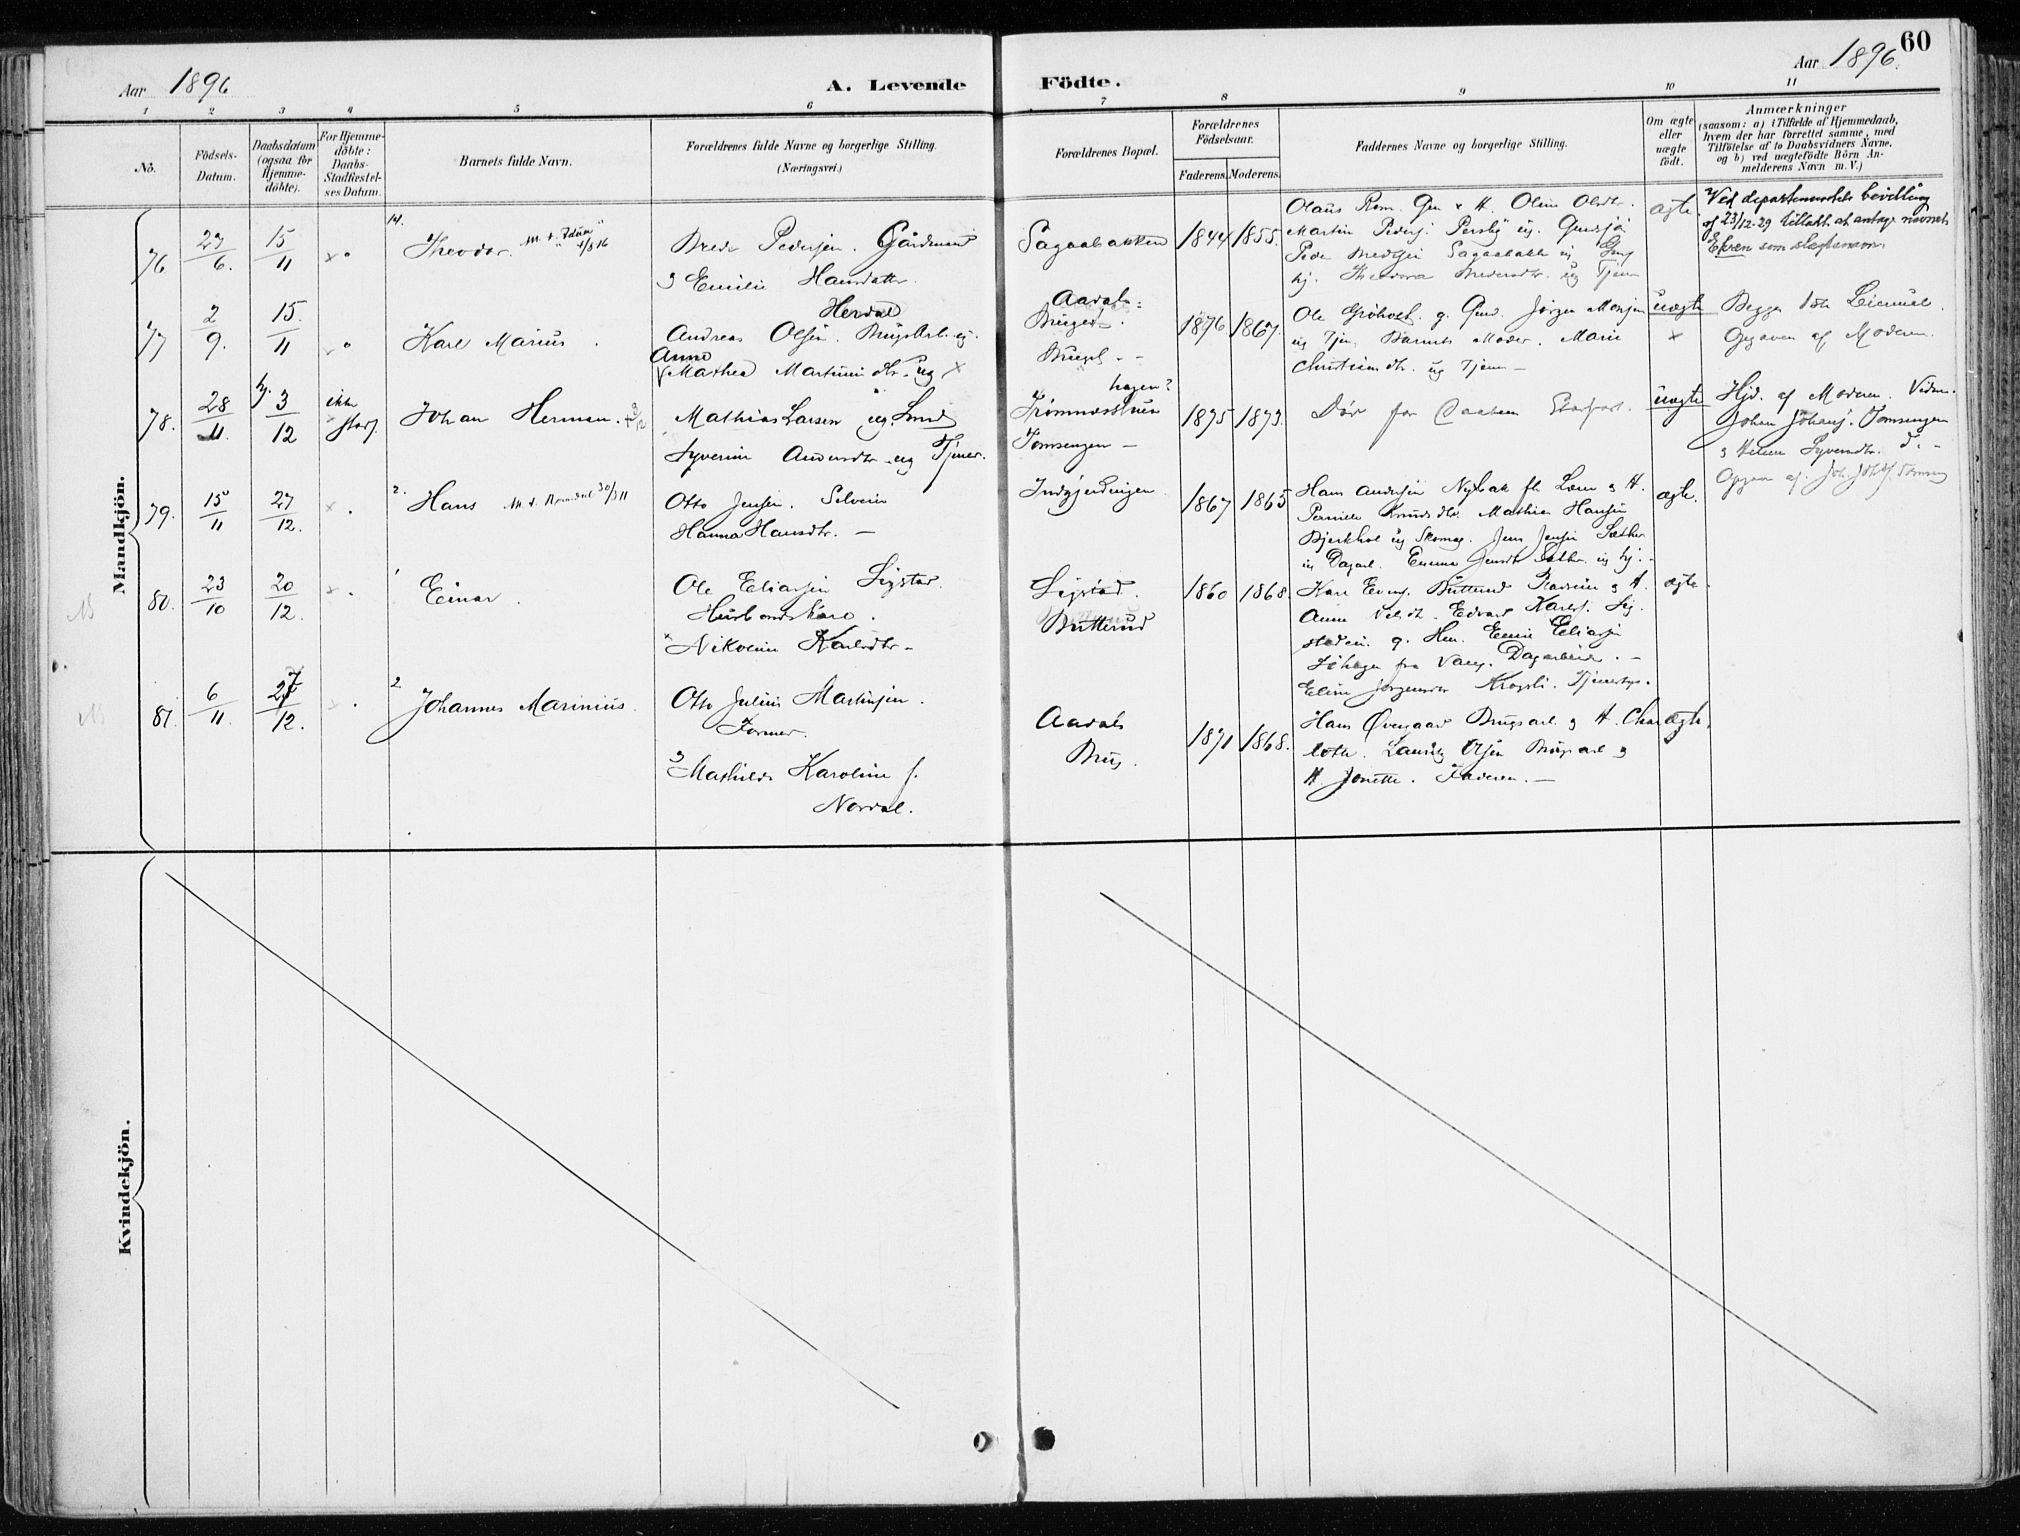 60
Aar 1896
A. Levende
Födte.
Aar 1896.
1 2 3 4 5 6 7 8 9 10 11
No.
Födsels-
Datum.
Daabsdatum
(ogsaa for
Hjemme-
döbte).
For Hjemme-
döbte:
Daabs-
Stadfæstel-
ses Datum.
Barnets fulde Navn.
Forældrenes fulde Navne og borgerlige Stilling.
(Næringsvei.)
Forældrenes Bopæl.
Forældrenes
Födselsaar.
Faderens. Moderens.
Faddernes Navne og borgerlige Stilling.
Om ægte
eller
uægte
födt.
Anmærkninger
(saasom: a) i Tilfælde af Hjemmedaab,
hvem der har forrettet samme, med
Tilföielse af to Daabsvidners Navne,
og b) ved uægtefödte Börn An-
melderens Navn m. V.)
Mandkjön.
76. 27/6. 15/11
14.
Theodor.
4/8 16
Brede Pedersen. Gårdmand
Emilie Hansdatter.
Sagaabakken
1844 1855.
Olaus Rom. Gm & H. Oline Olsdr.
Martin Peders. Persby ug.
Peder Bredesen Sagaabakk ug
hj. Theodora Bredesdtr. ug Tjen
ægte
Ved departementets bevilling
af 23/12-29 tillatt at antage navnet
Ekren som slægtsnavn.
77 2/9. 15./11
Karl Marius.
Herdal
Andreas Olsen. Brugsarb. ug.
Anna
Mathea Martinidtr. ug
Aadals
Bruget.
Bruget. - -
1876 1867.
Ole Gröholt. g. Gmd. Jörgen Monsen
ug Tjen. Barnets Moder. Marie
Christiansdtr. ug Tjen -
uægte
Begge 1ste Leiermål.
Opgaven af Moderen.
78. 28/11. hj. 3/12
ikke
stadf.
Johan Herman. + 9/12
Mathias Larsen ug. Smed
Syverine Andersdtr. ug Tjener.
hagen?
Tomsengen -
1875 1873.
Död før Daabens Stadfæst.
uægte
Hjd. af Moderen. Vidne.
Johan Johans. Tomsengen
Helene Syversdtr. d. -
Opgaven af. Joh Johs. Tomseng
79. 15/11 27/12.
2.
Hans 30/3 11
Otto Jensen. Selveier
Hanna Hansdtr. -
Indgjerdingen
1867 1865
Hans Andersen Nybak fh Læm & H.
Pernille Knudsdtr. Mathias Hansen
Bjerkhol ug Skomag. Jens Jensen Sæther
ug Dagarb. Emma Jensdtr Sæther. ug hj. -
ægte.
80. 23/10 20/12.
1
Einar.
Ole Eliassen Sigstad
Husbondskarl.
Nikoline Karlsdtr. -
Sigstad.
Butterud
1860 1868.
Karl Evens. Butterud Pladsm & H.
Anne Nilsdtr. Edvard Karls. Sig-
stadeie. g. Hm. Emil Eliassen
fra Vang. Dagarbeider. -
Eline Jörgensdtr Krogsti. Tjenestep.
ægte.
81. 6/11. 27/12.
2.
Johannes Marinius.
Otto Julius Martinsen.
Former.
Mathilde Karoline f.
Nordal.
Aadals
Brug.
1871 1868.
Hans Övergaard Brugsarb & H. Char
lotte. Lauritz Olsen Brugsarb &
H. Jonette. Faderen. -
ægte.
Kvindekjön.